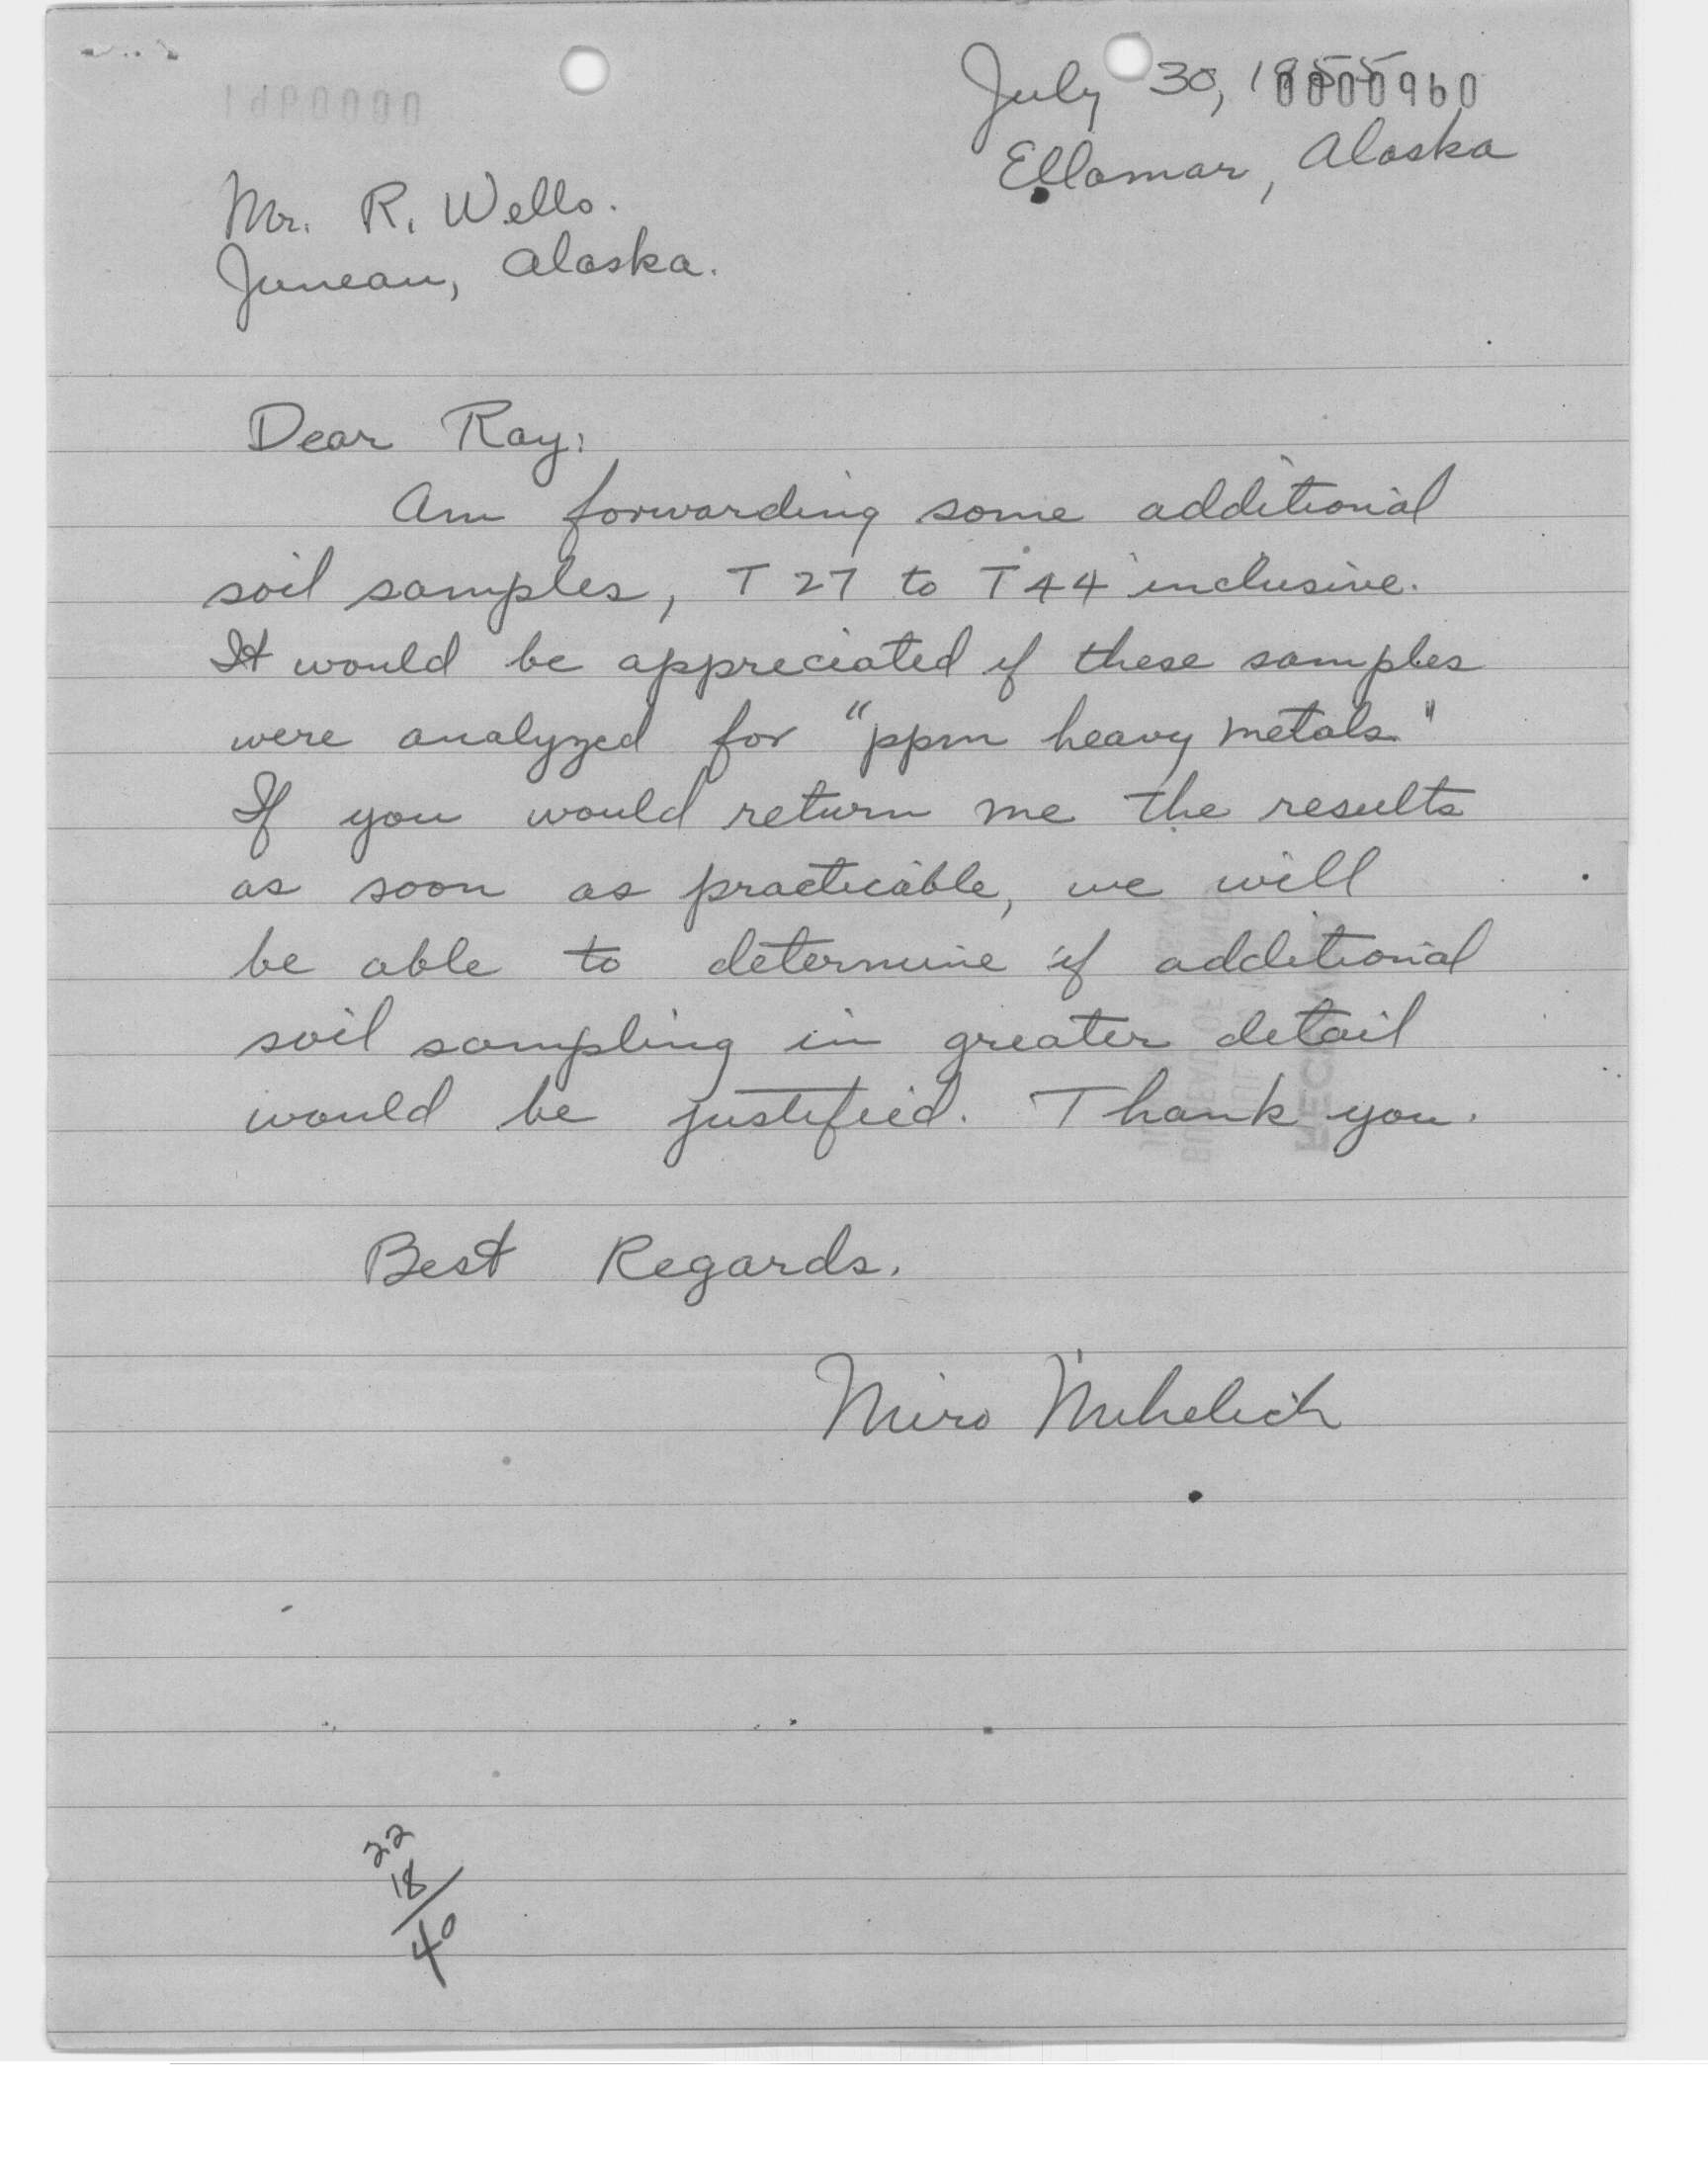 July 30, 1955
0000960
Ellamar, Alaska
Mr. R. Wells.
Juneau, Alaska.
Dear Ray:
Am forwarding some additional
soil samples, T 27 to T 44 inclusive.
It would be appreciated if these samples
were analyzed for "ppm heavy metals."
If you would return me the results
as soon as practicable, we will
be able to determine if additional
soil sampling in greater detail
would be justified. Thank you.
Best Regards.
Miro Mihelich
22
18
40